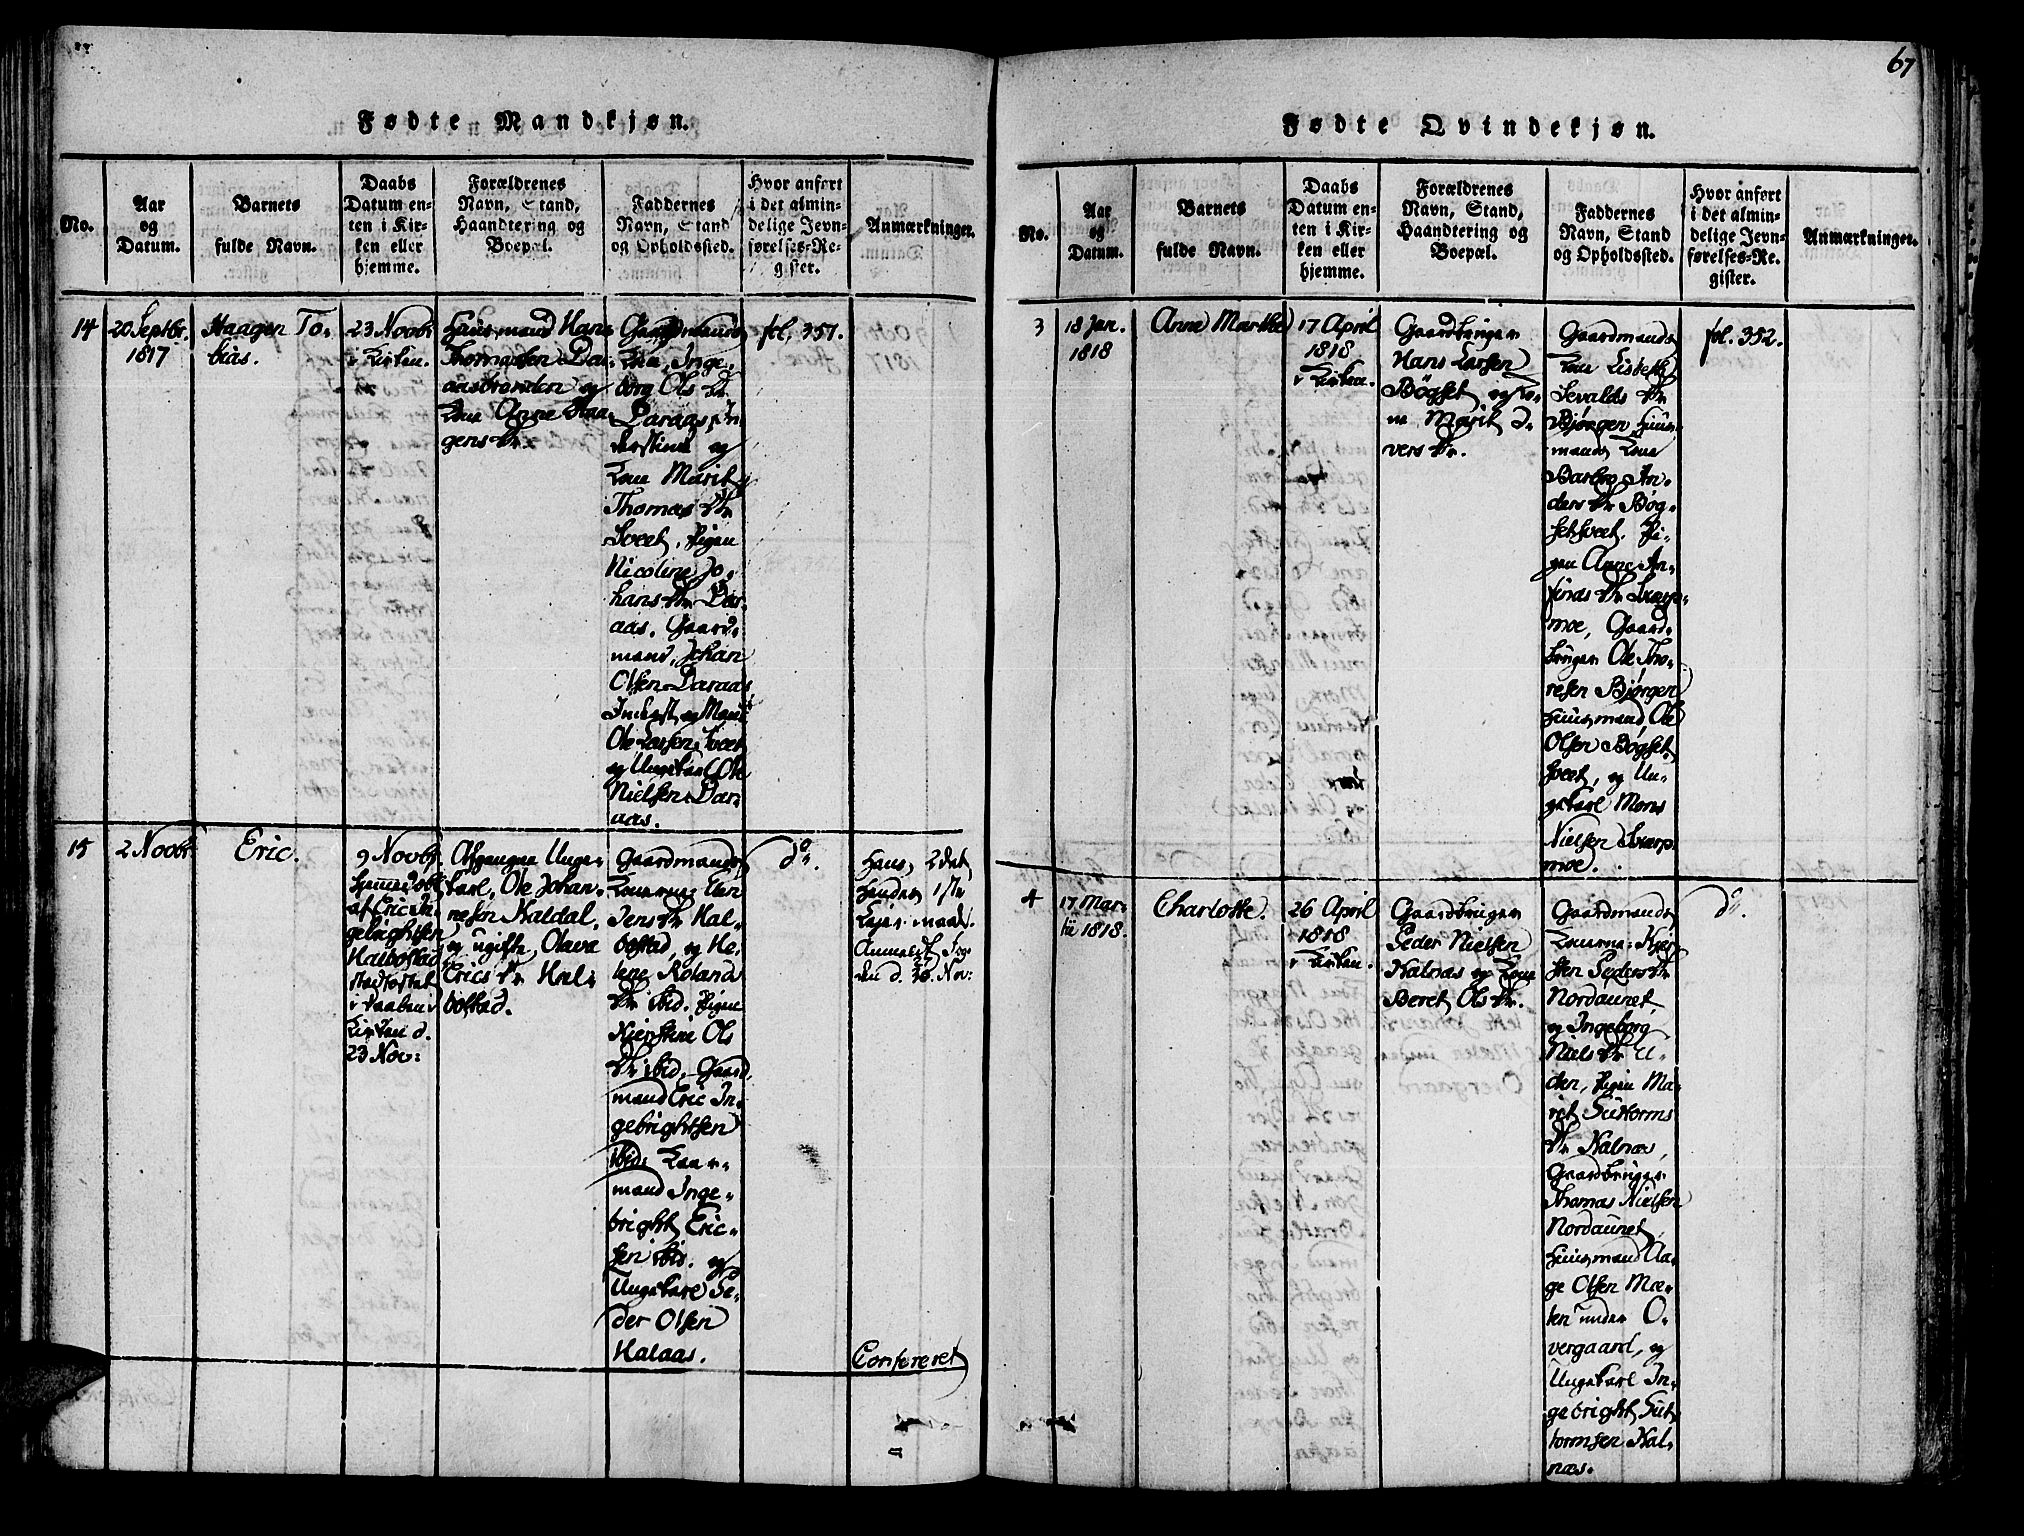 67
Fødte Mandkjøn.
No.
Aar
og
Datum.
Barnets
fulde Navn.
Daabs
Datum en-
ten i Kir-
ken eller
hjemme.
Forældrenes
Navn, Stand,
Haandtering og
Boepæl.
Faddernes
Navn, Stand
og Opholdssted.
Hvor anført
i det almin-
delige Jevn-
førelses-Re-
gister.
Anmærkninger.
14
20 Septbr.
1817
Haagen To-
bias.
23 Novbr
i Kirken.
Huusmand Hans
Thomasen Dar-
aasbrænden og
Kone Anne Haa-
gens Dr.
Gaardmands
Kone, Inge-
borg Ols Dr.
Daraas, In-
derstinde og
Kone Marit
Thomas Dr
Sveet, Pigen
Nicoline Jo-
hans Dr Dar-
aas. Gaard-
mand, Johan
Olsen Daraas
Inderst og Mand
Ole Larsen Sveet
og Ungekarl Ole
Nielsen Dar-
aas.
fol. 351.
15
2 Novbr
Eric.
9 Novbr.
hjemmedøbt
af Eric In-
gebrightsen
Halbostad
stadfæstet
i Daaben i
Kirken d.
23 Nov:
Afgangne Unge-
karl, Ole Johan-
nesen Kaldal,
og ugifte, Olava
Erics Dr Hal-
bostad.
Gaardmands
Konerne: Elen
Jens Dr Hal-
bostad, og He-
lene Roland
Dr ibid. Pigen
Kierstine Ols
Dr ibid. Gaard-
mand Eric In-
gebrightsen
ibid. Kaar-
mand Inge-
bright Eric-
sen ibid. og
Ungekarl Pe-
der Olsen
Halaas.
do.
Hans, 2det
hendes 1ste
Leiermaal.
Anmeldt Fog-
den d. 30. Nov:
Confereret
Fødte Qvindekjøn.
No.
Aar
og
Datum.
Barnets
fulde Navn.
Daabs
Datum en-
ten i Kir-
ken eller
hjemme.
Forældrenes
Navn, Stand,
Haandtering og
Boepæl.
Faddernes
Navn, Stand
og Opholdssted.
Hvor anført
i det almin-
delige Jevn-
førelses-Re-
gister.
Anmærkninger.
3
18 Jan.
1818
Anne Marthe
17 April
1818
i Kirken.
Gaardbruger
Hans Larsen
Bøgset og Ko-
ne Marit I-
vers Dr.
Gaardmands
Kone Lisbeth
Sevalds Dr
Bjørgen Huus-
mands Kone
Barbro An-
ders Dr Bøg-
setsveet. Pi-
gen Anne An-
finds Dr Svarp-
moe, Gaard-
bruger Ole Tho-
resen Bjørgen
Huusmand Ole
Olsen Bøgset
sveet, og Un-
gekarl Mons
Nielsen Svarp-
moe.
fol. 352.
4
17 Mar-
tii 1818.
Charlotte.
26 April
1818
i Kirken.
Gaardbruger
Peder Nielsen
Halnæs og Kone
Beret Ols Dr.
Gaardmands
Konerne: Kjer-
sten Peders Dr
Nordaunet,
og Ingeborg
Niels Dr U-
den, Pigen Ma-
ret Guttorms
Dr Halnæs,
Gaardbruger
Thomas Nielsen
Nordaunet,
Huusmand Aa-
ge Olsen Mæ-
len under O-
vergaard, og
Ungekarl In-
gebright Gut-
tormsen Hal-
næs.
do.